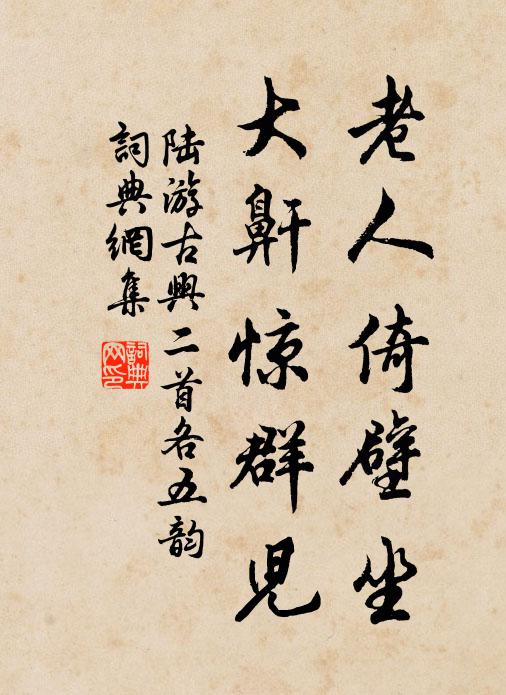 老人倚壁坐
大鼾惊群児
陆游古興二首各五韵
詞典網集
詞典网印